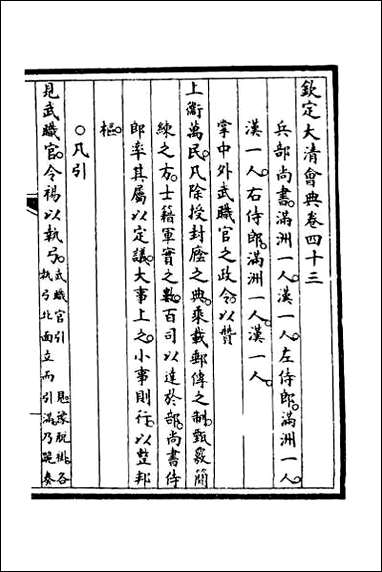 欽定大清會典卷四十三
兵部尚書。滿洲一人。漢一人。左侍郎。滿洲一人。
漢一人。右侍郎。滿洲一人。漢一人。
掌中外武職官之政令。以贊
上衞萬民。凡除授封廕之典。乘載郵傳之制。甄覈簡
練之方。士籍軍實之數。百司以達於部。尚書侍
郎率其屬以定議。大事上之。小事則行。以整邦
樞。
○凡引
見武職官。令裼以執弓。武職官引見。豫脫褂。各
執弓北面立而引滿。乃跪奏